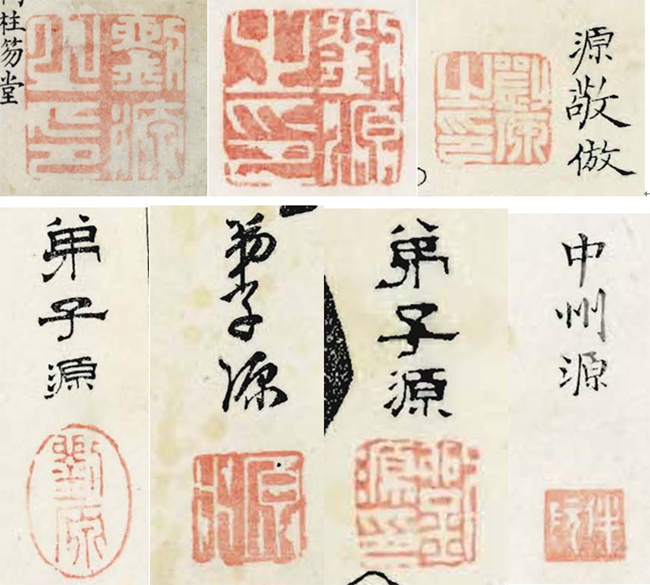 柱笏堂
劉源之印
劉源之印
劉源之印
源敬倣
弟子源
劉源
弟子源
源
弟子源
源印
中州源
伴阮